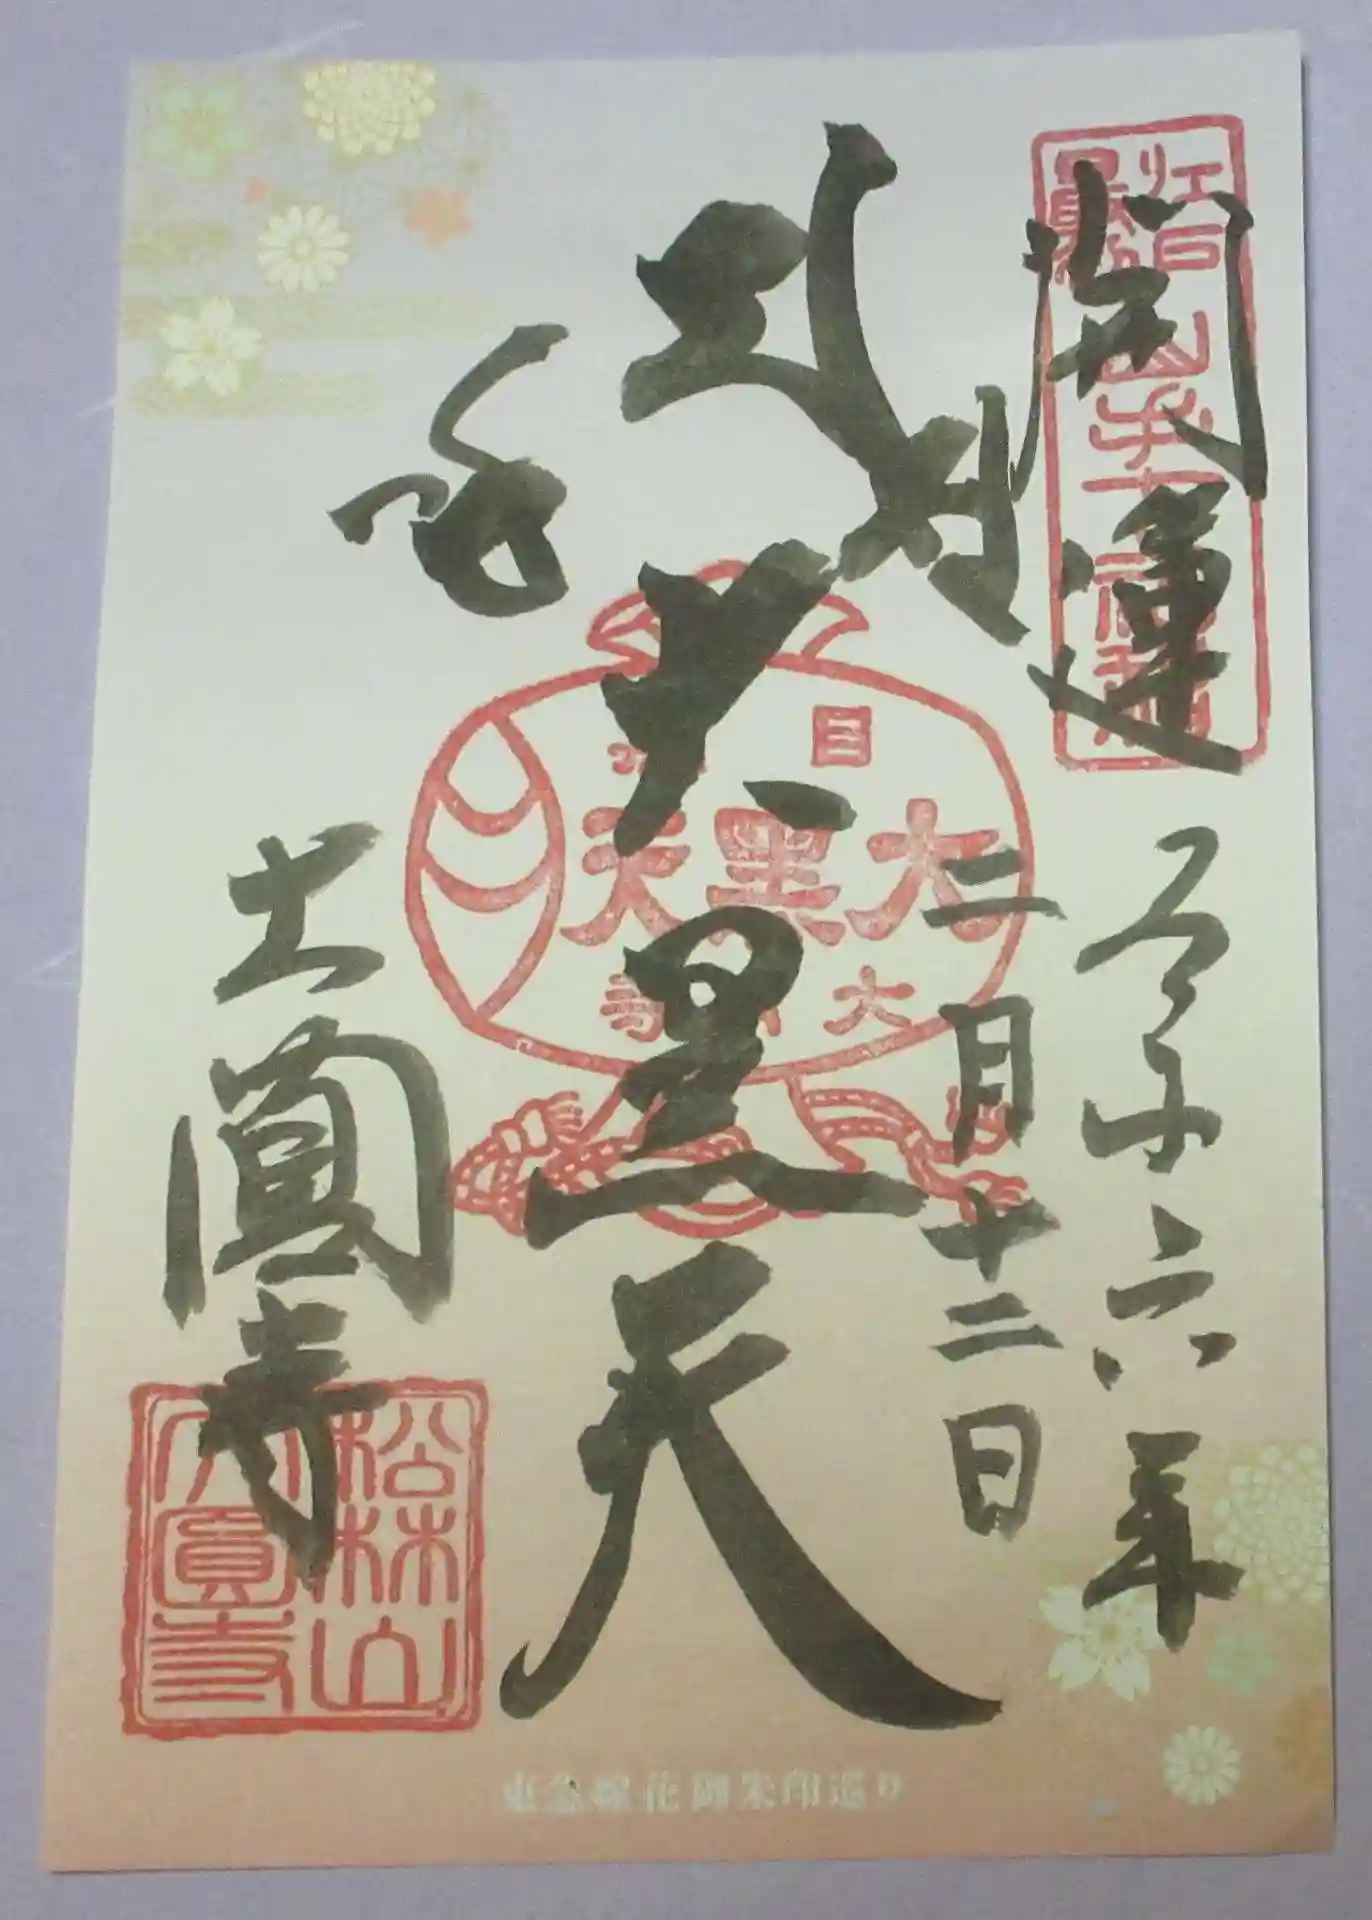 江戸最初山手七福神
開運
令和六年
二月十二日
大黒天
目黒
大黒天
大圓寺
大圓寺
松林山
大圓寺
東急線花御朱印巡り